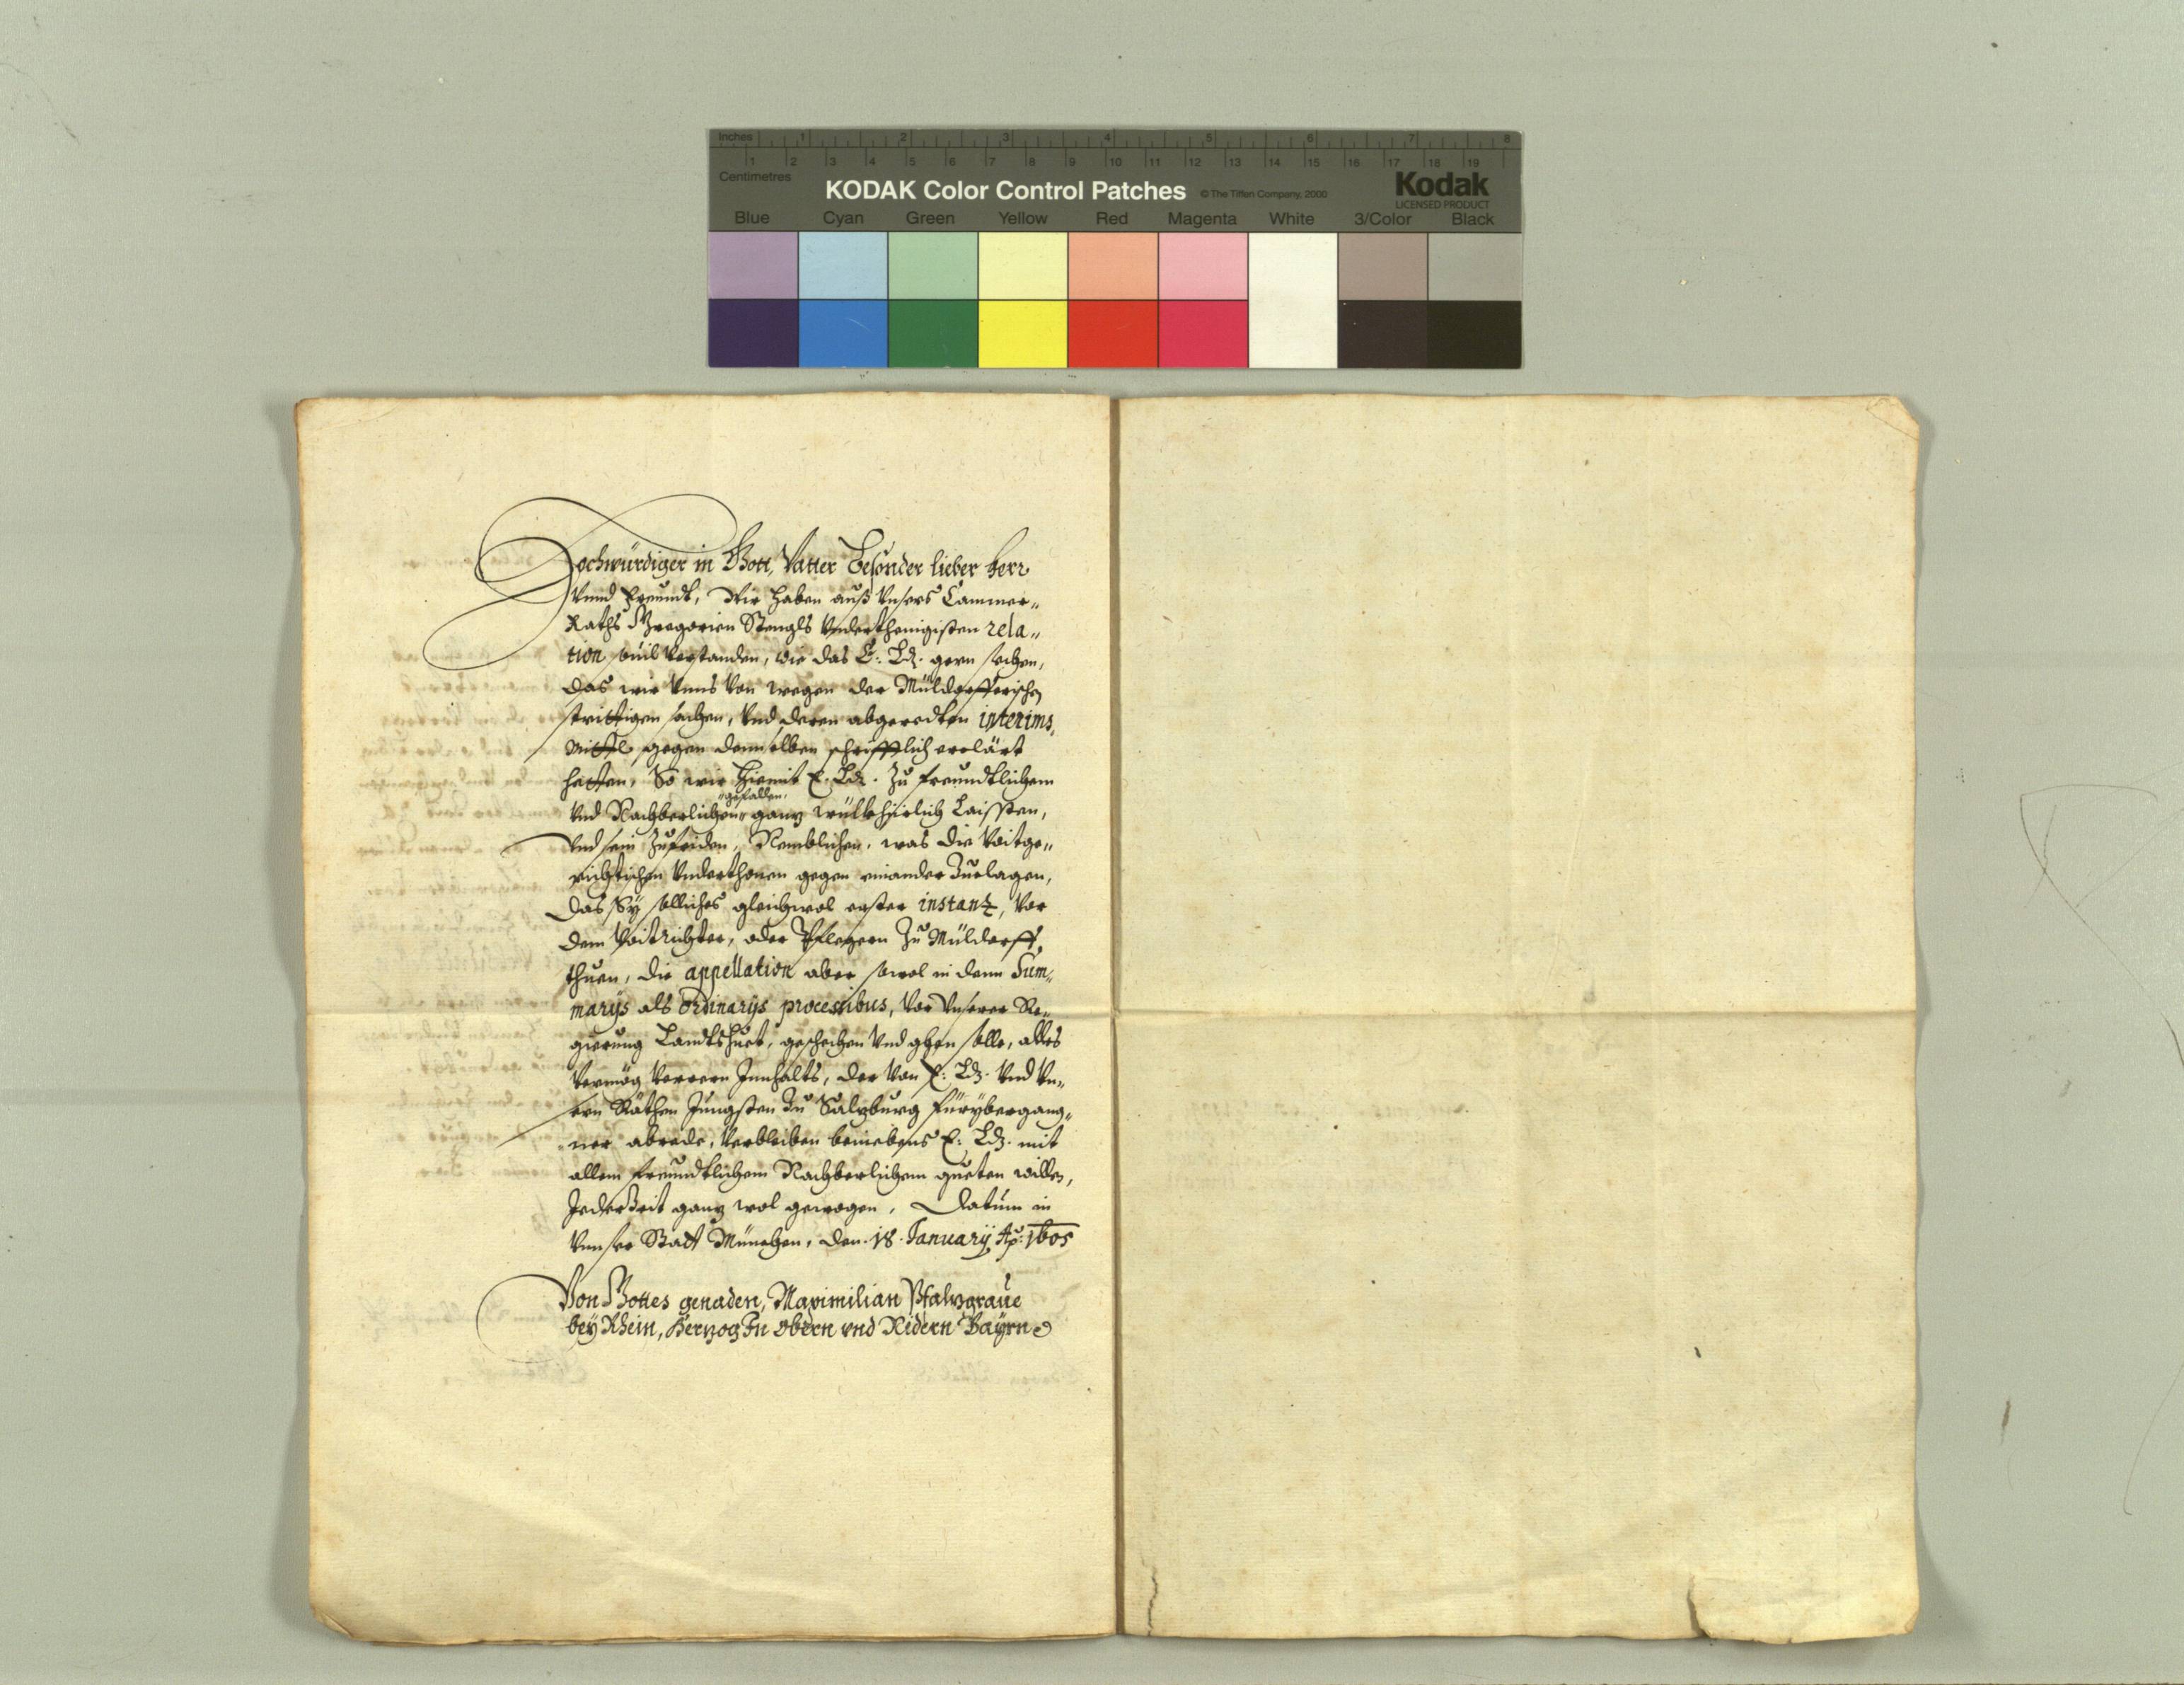 Inches 1 2 3 4 5 6 7 8
1 2 3 4 5 6 7 8 9 10 11 12 13 14 15 16 17 18 19
Centimetres
KODAK Color Control Patches © The Tiffen Company, 2000 Kodak
LICENSED PRODUCT
Blue Cyan Green Yellow Red Magenta White 3/Color Black
Hochwürdiger in Gott, Vatter Besonder lieber herr
Vnnd Freundt, Wir haben auß Vnsers Cammer„
Raths Gregorien Stengls Vnderthenigisten rela„
tion souil verstanden, wie das E: Ld. gern sechen,
das wir Vnns von wegen der Müldorfferischen
strittigen sachen, Vnd deren abgeredten interims„
mittl gegen dennselben schrifftlich erclärt
hetten, So wir hiemit E. Ld. zu freundtlichem
„gefallen„
Vnd Nachberlichem„ ganz willkhürlich Laissten,
Vnd sein zufriden, Nemblichen, was die Voitge„
richtischen Vnderthonen gegen einander zuclagen,
Das Sy solliches gleichwol erster instantz, Vor
dem Voitrichter, oder Pflegern zu Müldorff,
thuen, die appellation aber sowol in denn Sum„
marijs als Ordinarijs processibus, Vor Vnserer Re„
gierung Landtshuet, geschechen Vnd ghen solle, alles
Vermög Verrern Innhalts, der Von E: Ld. Vnd Vn„
sern Räthen Jungsten zu Salzburg fürübergang„
ner abrede, Verbleiben benebens E: Ld. mit
allem freundtlichem Nachberlichem gueten willen,
Jederzeit ganz wol gewogen. Datum in
Vnnser Statt München, den 18. January Ao: 1605
Von Gottes genaden, Maximilian Pfalzgraue
bey Rhein, Herzog In Obern vnd Nidern Bayrn